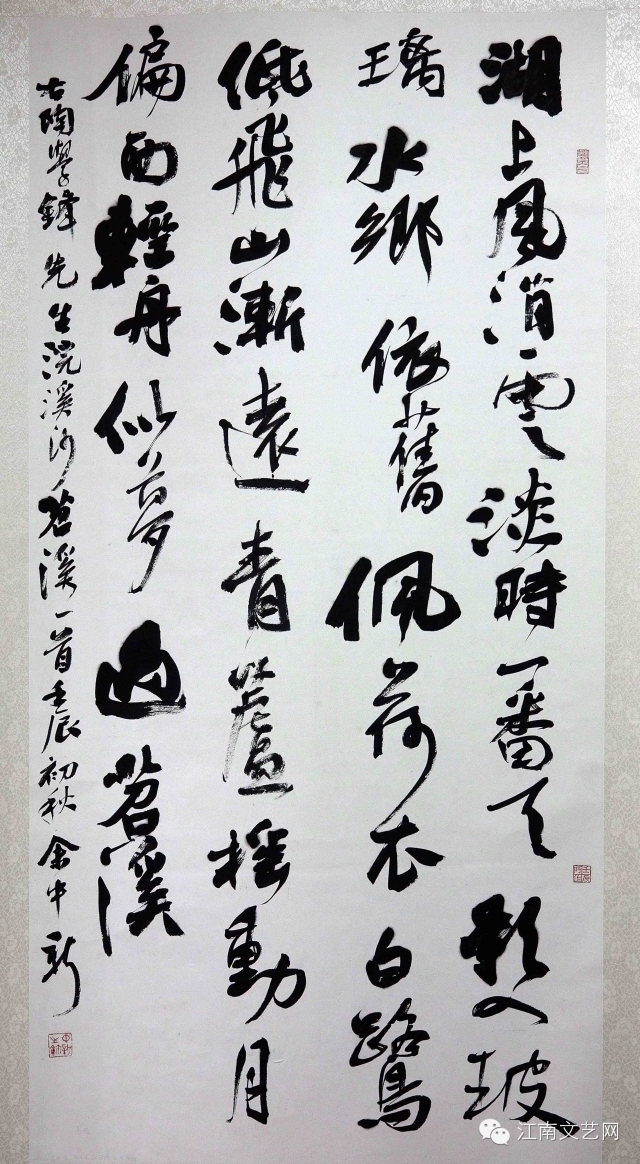 湖上風消雲淡時一番天影入玻
璃水鄉依舊佩荷衣白鷺
低飛山漸遠青蘆摇動月
偏西輕舟似夢過苕溪
右陶學鋒先生浣溪沙苕溪一首壬辰初秋余中新
江南文艺网